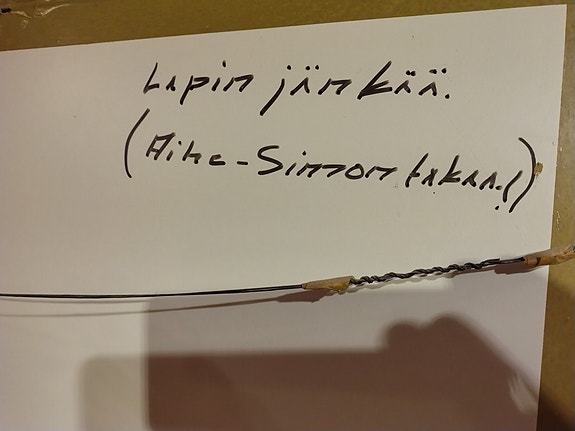 Lapin jänkää.
(Aihe-Simon takaa!)